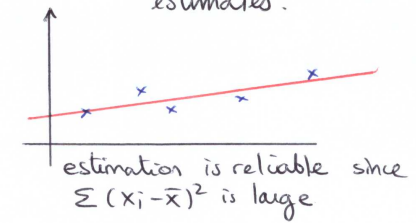 estimates.
estimation is reliable since
Σ(xi-x̄)² is large